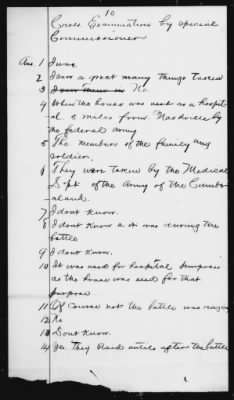 10
Cross Examination by special
Commissioner
Ans. 1 I was.
2 I saw a great many things taken
3 I saw them in No.
4 When the house was used as a hospit-
al. 6 miles from Nashville by
the federal army
5 The members of the family and
soldiers.
6 They were taken by the Medical
Dpt of the Army of the Cumber-
land.
7 I dont know.
8 I dont know it was during the
battle
9 I dont know.
10 It was used for hospital purposes
as the house was used for that
purpose
11 Of course not the battle was raging
12 No
13 Dont know.
14 Yes. They staid untill after the battle